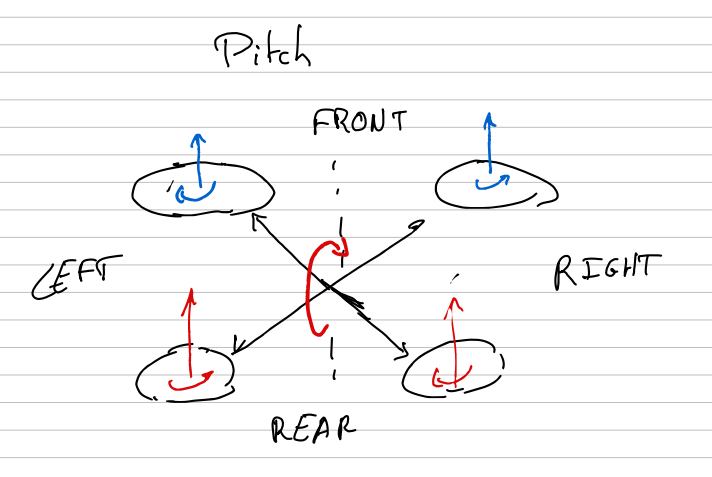 Pitch
FRONT
LEFT
RIGHT
REAR